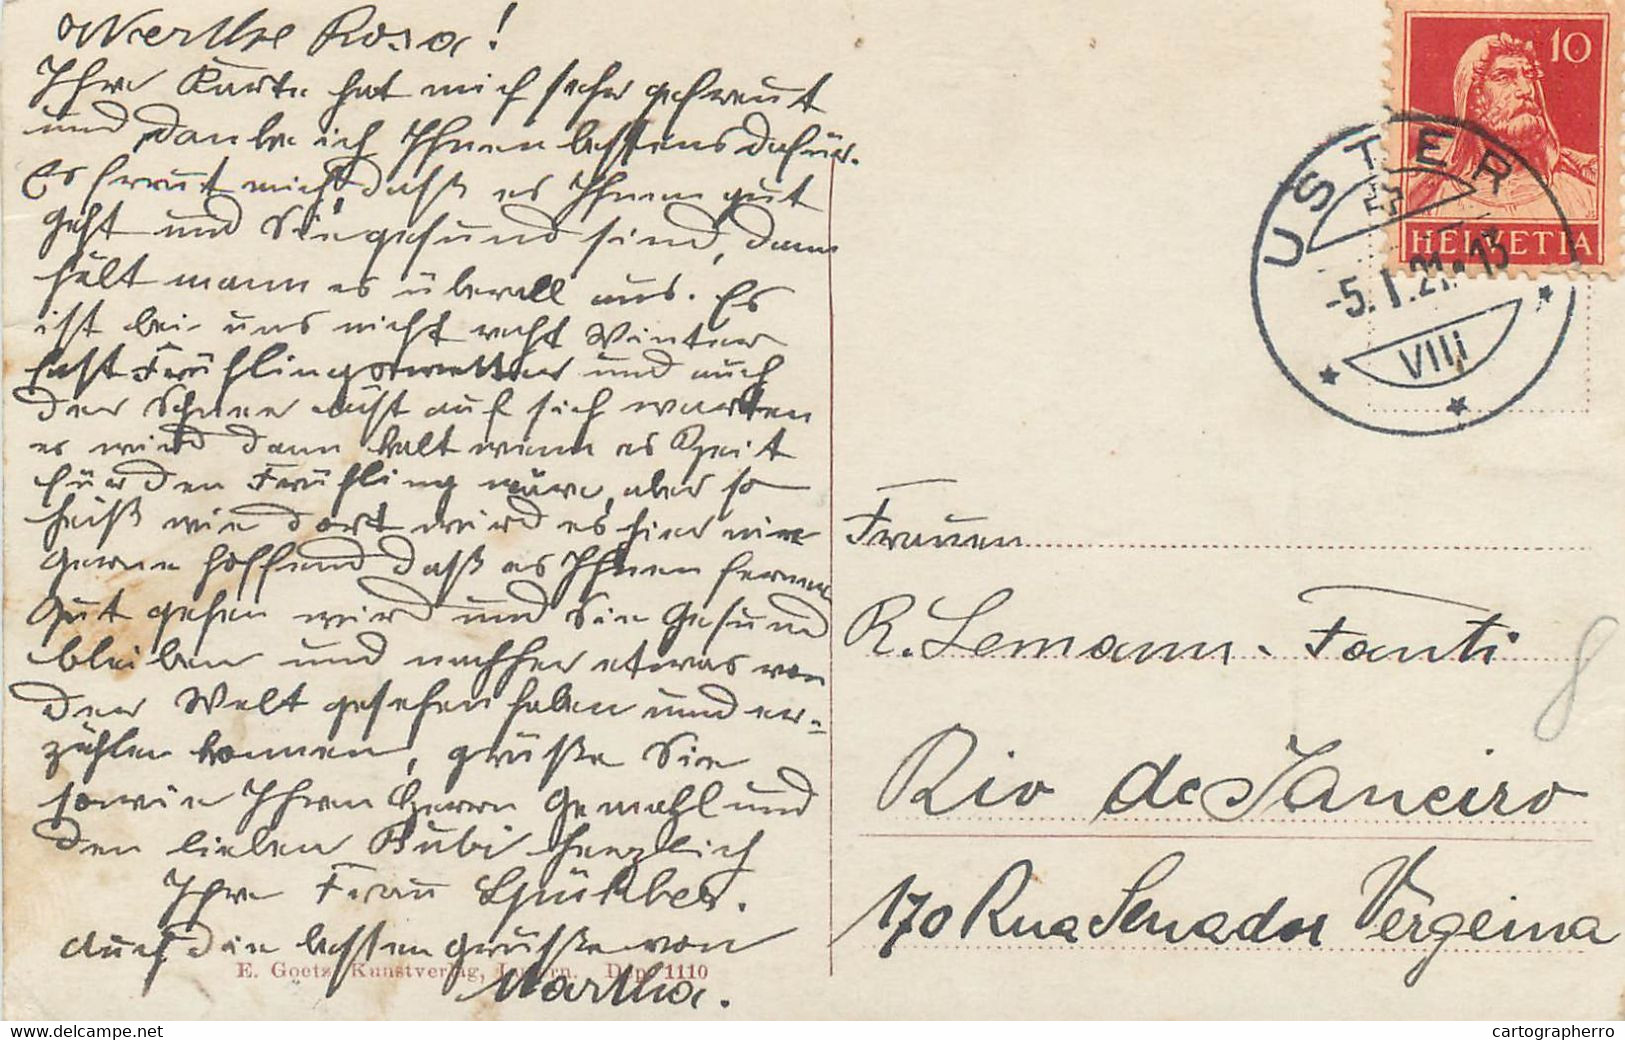 Werthe Rosa!
Ihre Karte hat mich sehr gefreut
und danke ich Ihnen bestens dafür.
Es freut mich, daß es Ihnen gut
geht und Sie gesund sind, dann
hält mann es überall aus. Es
ist bei uns nicht recht Winter
fast Frühlingswetter und auch
der Schnee läßt auf sich warten
es wird dann kalt wenn es Zeit
für den Frühling wäre, aber so
heiß wie dort wird es hier nie
Gerne hoffend daß es Ihnen ferner
gut gehen wird und Sie Gesund
bleiben und nachher etwas von
der Welt gesehen haben und er-
zählen können, grüße Sie
sowie Ihren Herrn Gemahl und
den lieben Bubi herzlich
Ihre Frau
auch die besten Grüße von
Martha.
E. Goetz, Kunstverlag, Luzern. Dep. 1110
10
HELVETIA
USTER
-5.I.21.-13
VIII
Frauen
R. Lemann-Fanti
Rio de Janeiro
170 Rua Senador Vergeina
8
cartographerro